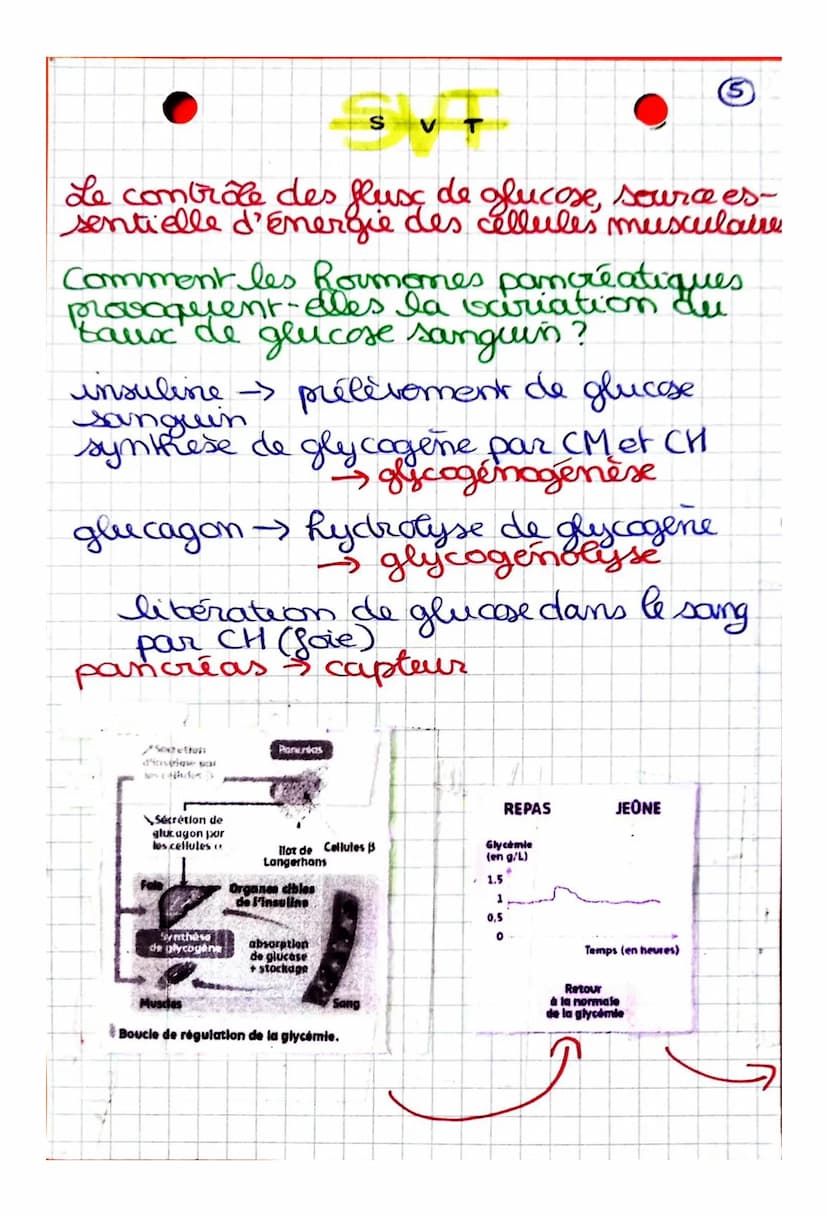 5
SVT
S V T
Le contrôle des flux de glucose, source es-
sentielle d'énergie des cellules musculaires
Comment les hormones pancréatiques
provoquent-elles la variation du
taux de glucose sanguin ?
insuline → prélèvement de glucose
sanguin
synthèse de glycogène par CM et CH
→ glycogénogénèse
glucagon → hydrolyse de glycogène
→ glycogénolyse
libération de glucose dans le sang
par CH (foie)
pancréas → capteur
↗ Sécrétion
d'insuline par
les cellules β
Pancréas
↘ Sécrétion de
glucagon par
les cellules α
Ilot de
Langerhans
Cellules β
Foie
Organes cibles
de l'insuline
Synthèse
de glycogène
absorption
de glucose
+ stockage
Muscles
Sang
Boucle de régulation de la glycémie.
REPAS JEÛNE
Glycémie
(en g/L)
1.5
1
0,5
0
Temps (en heures)
Retour
à la normale
de la glycémie